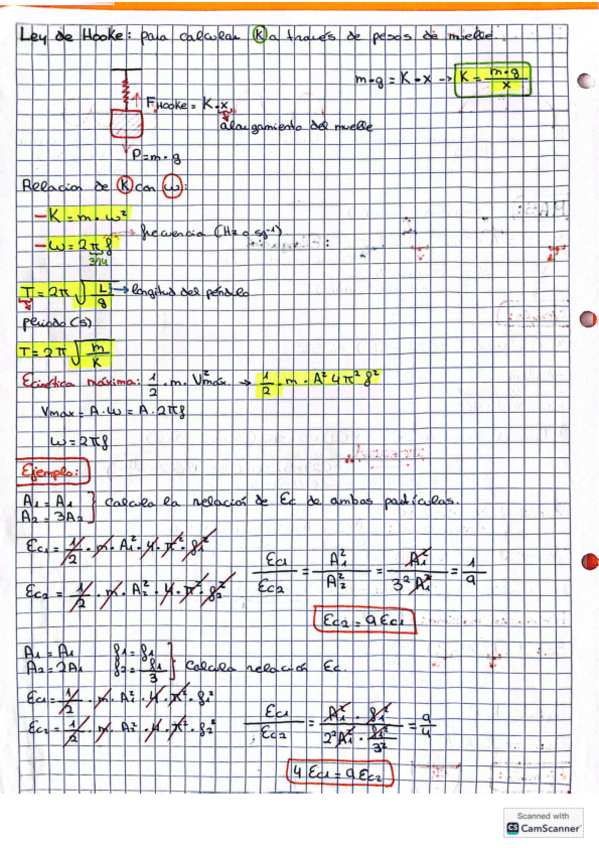 Ley de Hooke: para calcular K a través de pesos de muelle.
m·g = K·x → K = m·g / x
FHooke = K·x
alargamiento del muelle
P=m·g
Relación de K con ω:
- K = m·ω²
- ω = 2πf → frecuencia (Hz o sg⁻¹)
3'14
T = 2π √(L/g) → longitud del péndulo
periodo (s)
T = 2π √(m/K)
Ecinética máxima: 1/2 · m · V²máx → 1/2 · m · A² 4π² f²
Vmax = A·ω = A·2πf
ω = 2πf
Ejemplo:
A1 = A1
A2 = 3A2 } Calcula la relación de Ec de ambas partículas.
Ec1 = 1/2 · m · A1² · 4 · π² · f1²
Ec2 = 1/2 · m · A2² · 4 · π² · f2²
Ec1/Ec2 = A1²/A2² = A1²/3²A1² = 1/9
Ec2 = 9Ec1
A1 = A1 f1 = f1
A2 = 2A1 f2 = f1/3 } Calcula relación Ec.
Ec1 = 1/2 · m · A1² · 4 · π² · f1²
Ec2 = 1/2 · m · A2² · 4 · π² · f2²
Ec1/Ec2 = A1² · f1² / 2²A1² · f1²/3² = 9/4
4 Ec1 = 9Ec2
Scanned with
CS CamScanner